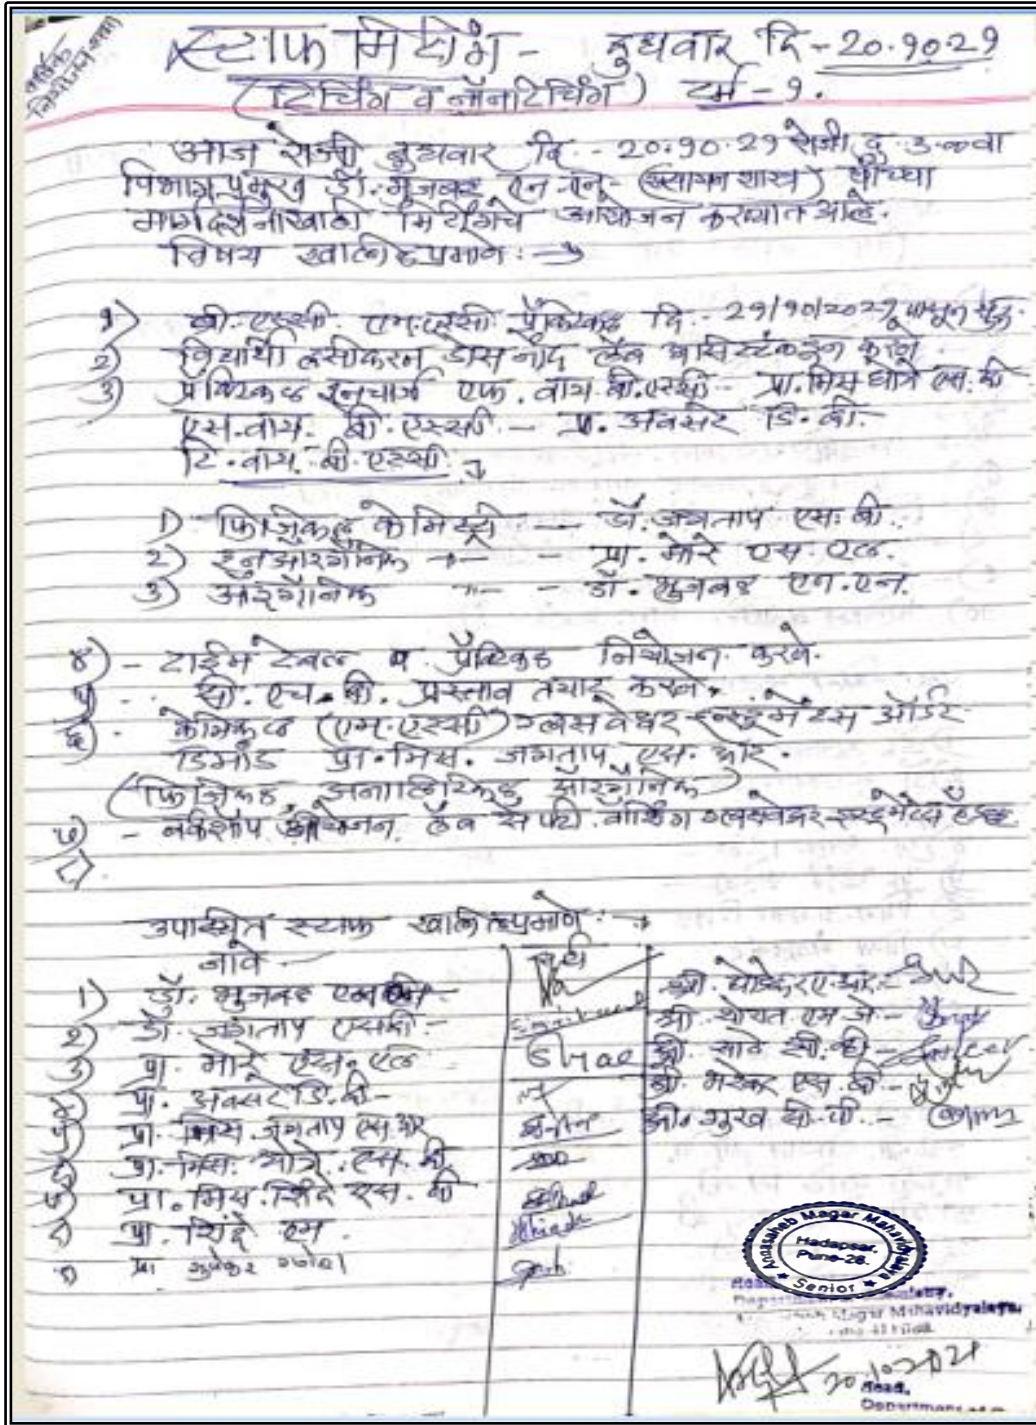 स्टाफ मिटींग - बुधवार दि - 20.10.21
(टिचिंग व नॉनटिचिंग) टर्म - 1.
आज रोजी बुधवार दि. - 20.10.21 रोजी दु. 3.00वा
विभाग प्रमुख डॉ. भुजबळ एन. एन. - (रसायन शास्त्र) यांच्या
मार्गदर्शनाखाली मिटींगचे आयोजन करण्यात आले.
विषय खालीलप्रमाणे : →
1) बी. एस्सी. एम. एस्सी. प्रॅक्टिकल दि. - 21/10/2021 पासून सुरू.
2) विद्यार्थी लसीकरन डोस नोंद लॅब असिस्टंटकडून करणे.
3) प्रॅक्टिकल इनचार्ज एफ. वाय. बी. एस्सी - प्रा. मिस थोत्रे एस. बी
एस. वाय. बी. एस्सी. - प्रा. अवसरे डि. बी.
टि. वाय. बी. एस्सी. ↴
1) फिजिकल केमिस्ट्री - डॉ. जगताप एस. बी.
2) इनआरगॅनिक -"- - प्रा. मोरे एस. एल.
3) आरगॅनिक -"- - डॉ. भुजबळ एन. एन.
४) - टाईम टेबल व प्रॅक्टिकल नियोजन करावे.
५) सी. एच. बी. प्रस्ताव तयार करणे.
६). केमिकल (एम. एस्सी) ग्लासवेअर इन्स्ट्रुमेंटस ऑर्डर
डिमांड प्रा. मिस. जगताप एस. आर.
(फिजिकल अनालिटिकल आरगॅनिक)
७) - वर्कशॉप आयोजन. लॅब सेफ्टी. वॉशिंग ग्लासवेअर इन्स्ट्रुमेंटस हँडल
८).
उपस्थित स्टाफ खालीलप्रमाणे : →
नावे - सही
1) डॉ. भुजबळ एन एन -
2) डॉ. जगताप एस बी -
3) प्रा. मोरे एस. एल
४) प्रा. अवसरे डि. बी -
५) प्रा. मिस. जगताप एस. आर
६) प्रा. मिस. थोत्रे. एस. बी
७) प्रा. मिस. शिंदे एस. बी
८) प्रा. शिंदे एम.
९) प्रा
श्री. ए. आर. -
श्री. थोरात एम. जे. -
श्री. साठे सी. व्ही -
श्री. एस. बी. -
श्री.
Annasaheb Magar Mahavidyalaya
Hadapsar,
Pune-28.
★ Senior ★
Magar Mahavidyalaya,
20.10.2021
Head,